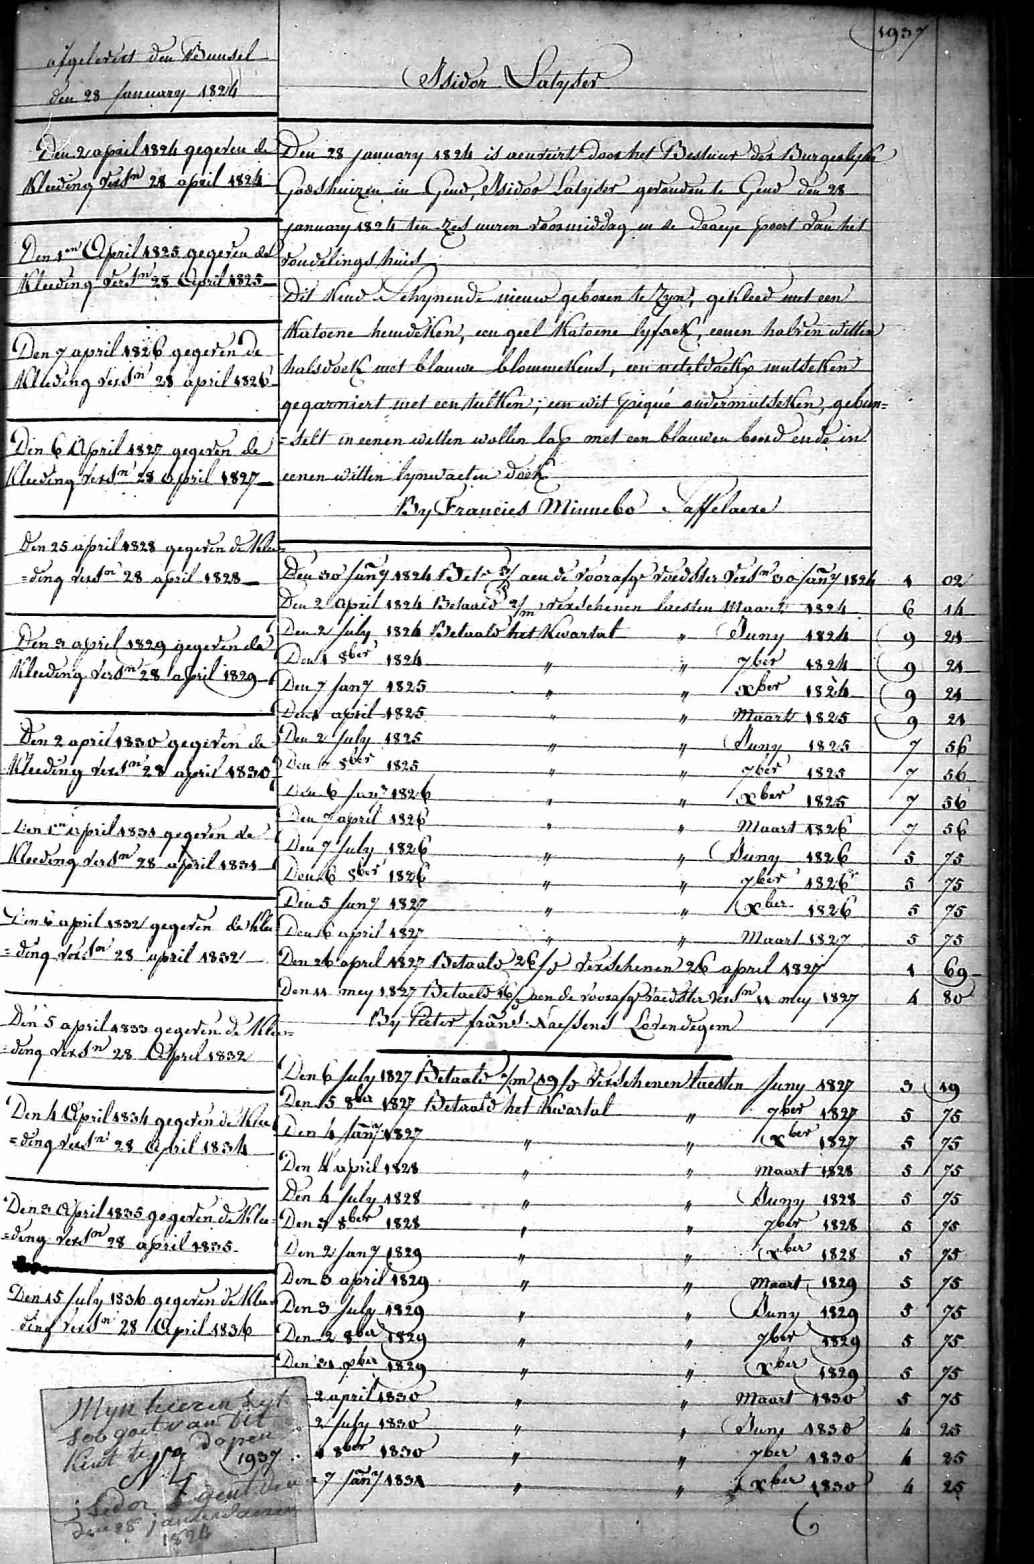 1937
afgelevert den Bunsel
den 28 January 1824
Isidor Latyser
Den 2 april 1824 gegeven de
Kleeding versn 28 april 1824
Den 1en April 1825 gegeven de
Kleeding versn 28 April 1825
Den 7 april 1826 gegeven de
Kleeding versn 28 april 1826
Den 6 April 1827 gegeven de
Kleeding versn 28 april 1827
Den 25 april 1828 gegeven de Klee=
=ding versn 28 april 1828
Den 3 april 1829 gegeven de
Kleeding versn 28 april 1829
Den 2 april 1830 gegeven de
Kleeding versn 28 april 1830
Den 1en April 1831 gegeven de
Kleeding versn 28 april 1831
Den 6 april 1832 gegeven de Klee
=ding versn 28 april 1832
Den 5 april 1833 gegeven de Klee=
=ding versn 28 April 1832
Den 4 April 1834 gegeven de Klee
=ding versn 28 April 1834
Den 3 April 1835 gegeven de Klee=
=ding versn 28 april 1835
Den 15 July 1836 gegeven de Klee
ding versn 28 April 1836
Den 28 january 1824 is aenveirt door het Bestuer der Burgerlyke
Godshuizen in Gend, Isidor Latyser gevonden te Gend den 28
january 1824 ten zes uuren voormiddag in de draeye poort van het
vondelings huis
Dit kind Schynende nieuw geboren te Zyn, gekleed met een
Katoene hemdeken, een geel Katoene lyfrok, eenen halven witten
halsdoek met blauwe blommekens, een neteldoekx mutseken
gegarniert met een tulken; een wit piqué ondermutseken, gebun=
=selt in eenen witten wollen lap met een blauwen boord ende in
eenen witten lynwaeten doek
By Francies Minnebo Saffelaere
Den 30 Jany 1824 Bet 3/ aen de voorafge voedster versn 30 Jany 1824 1 02
Den 2 April 1824 Betaald 2/m verschenen laesten Maart 1824 6 14
Den 2 July 1824 Betaald het Kwartal " Juny 1824 9 21
Den 1 8ber 1824 " " 7ber 1824 9 21
Den 7 Jany 1825 " " xber 1824 9 21
Den 1 april 1825 " Maart 1825 9 21
Den 2 July 1825 " " Juny 1825 7 56
Den 7 8ber 1825 " " 7ber 1825 7 56
Den 6 Jany 1826 " " xber 1825 7 56
Den 7 april 1826 " " Maart 1826 7 56
Den 7 July 1826 " " Juny 1826 5 75
Den 6 8ber 1826 " " 7ber 1826 5 75
Den 5 Jany 1827 " " xber 1826 5 75
Den 6 april 1827 " " Maart 1827 5 75
Den 26 april 1827 Betaald 26/ verschenen 26 april 1827 1 69
Den 11 mey 1827 Betaeld 16/ aen de voorafge voedster versn 11 mey 1827 4 80
By Pieter frans Naessens Lovendegem
Den 6 July 1827 Betaald 1/m 19/ verschenen laesten Juny 1827 3 19
Den 15 8ber 1827 Betaald het Kwartal " 7ber 1827 5 75
Den 4 Jany 1827 " " xber 1827 5 75
Den 4 april 1828 " " Maart 1828 5 75
Den 4 July 1828 " " Juny 1828 5 75
Den 3 8ber 1828 " " 7ber 1828 5 75
Den 2 Jany 1829 " " xber 1828 5 75
Den 3 april 1829 " " Maart 1829 5 75
Den 3 July 1829 " " Juny 1829 5 75
Den 2 8ber 1829 " " 7ber 1829 5 75
Den 31 xber 1829 " " xber 1829 5 75
2 april 1830 " " Maart 1830 5 75
2 July 1830 " " Juny 1830 4 25
1 8ber 1830 " " 7ber 1830 4 25
7 Jany 1831 " " xber 1830 4 25
Myn heeren
van Dit
Kint te dopen
No 1937
isidor gent den
den 28 januari
1824